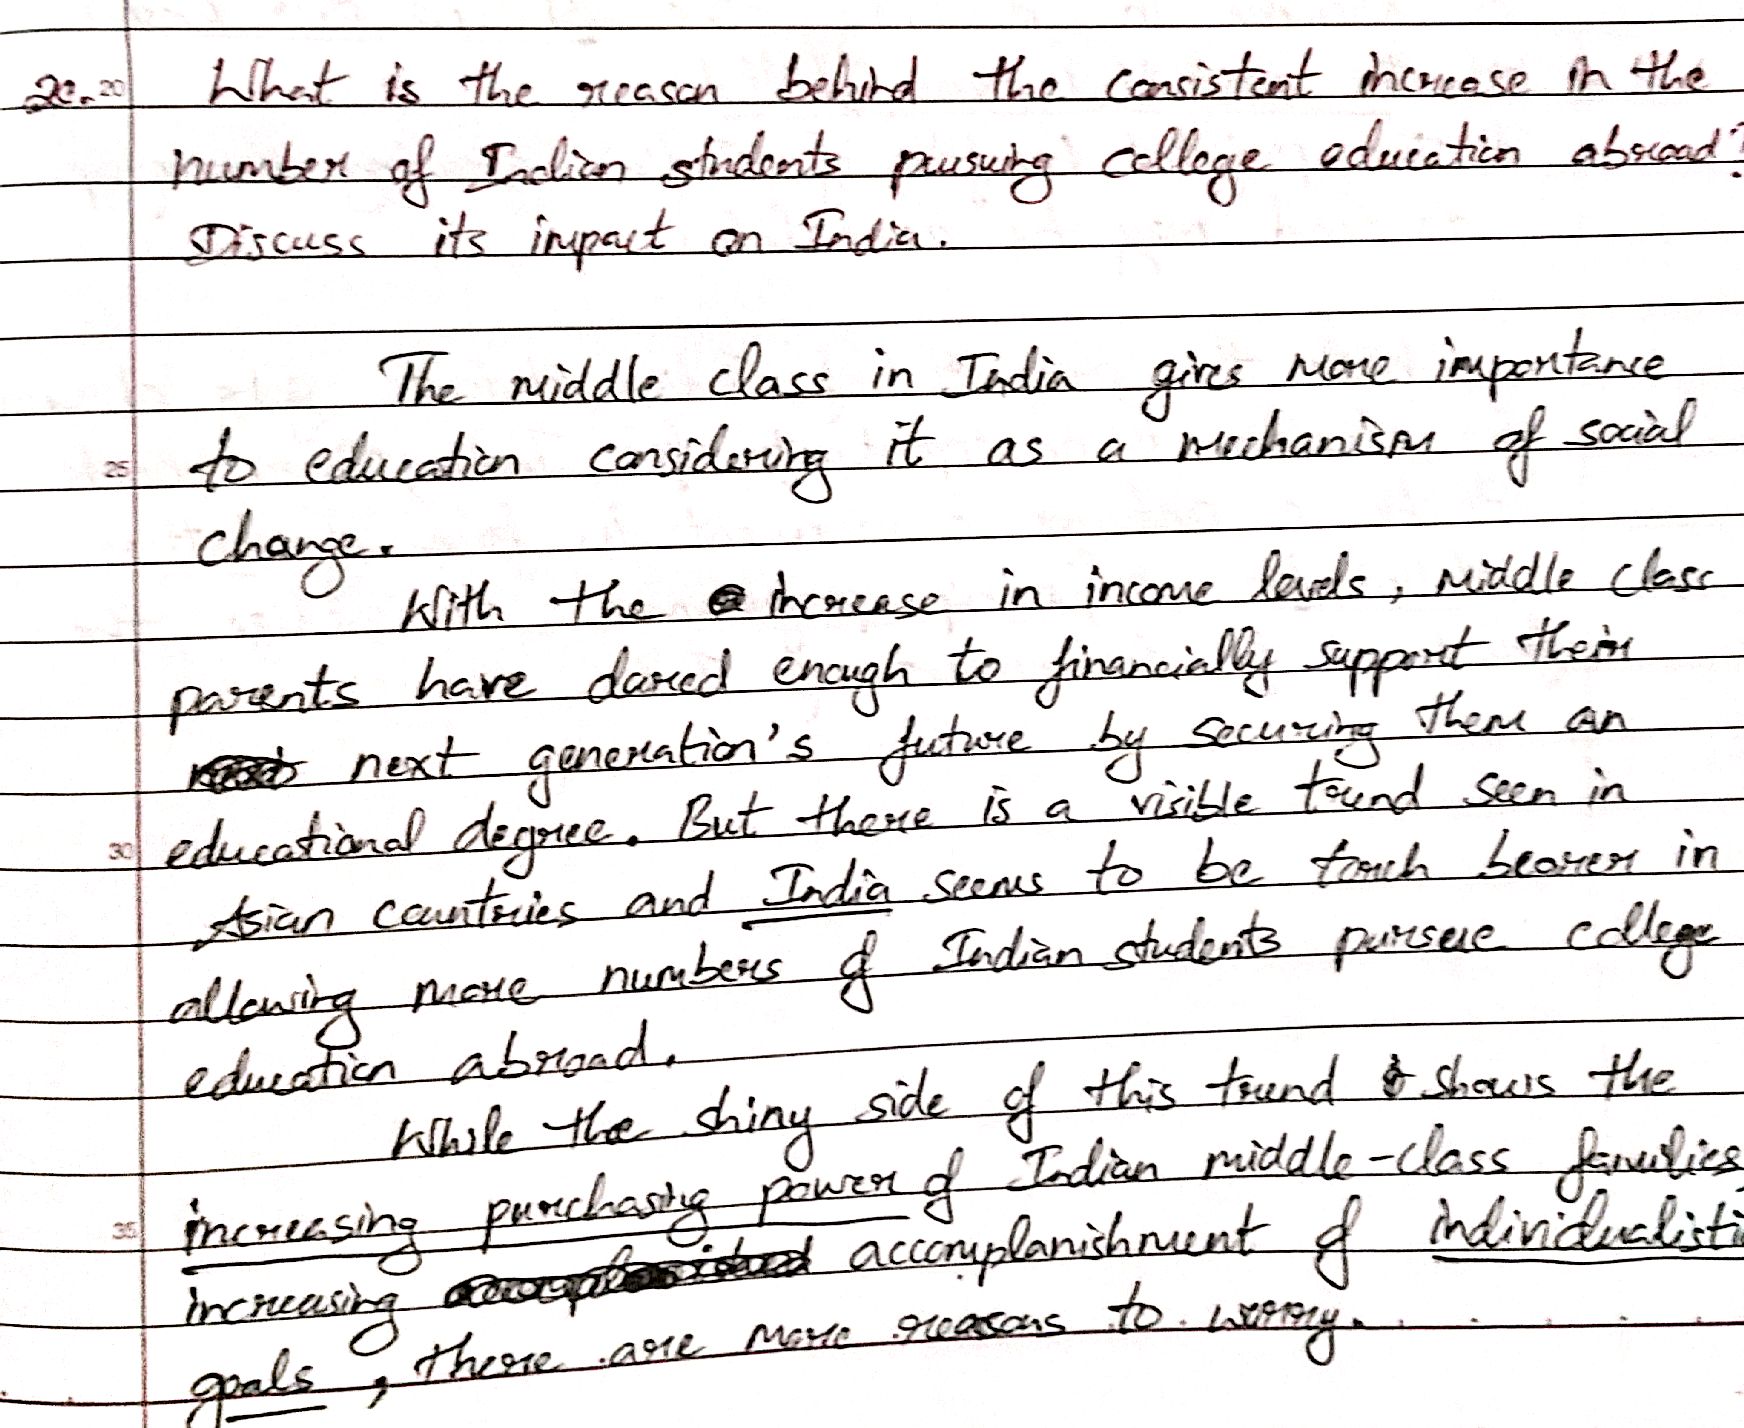 20. 20 What is the reason behind the consistent increase in the
number of Indian students pursuing college education abroad?
Discuss its impact on India.
The middle class in India gives more importance
25 to education considering it as a mechanism of social
change.
With the increase in income levels, middle class
parents have dared enough to financially support their
next generation's future by securing them an
30 educational degree. But there is a visible trend seen in
Asian countries and India seems to be torch bearer in
allowing more numbers of Indian students pursue college
education abroad.
While the shiny side of this trend shows the
35 increasing purchasing power of Indian middle-class families,
increasing accomplanishment of individualisti
goals, there are more reasons to worry.